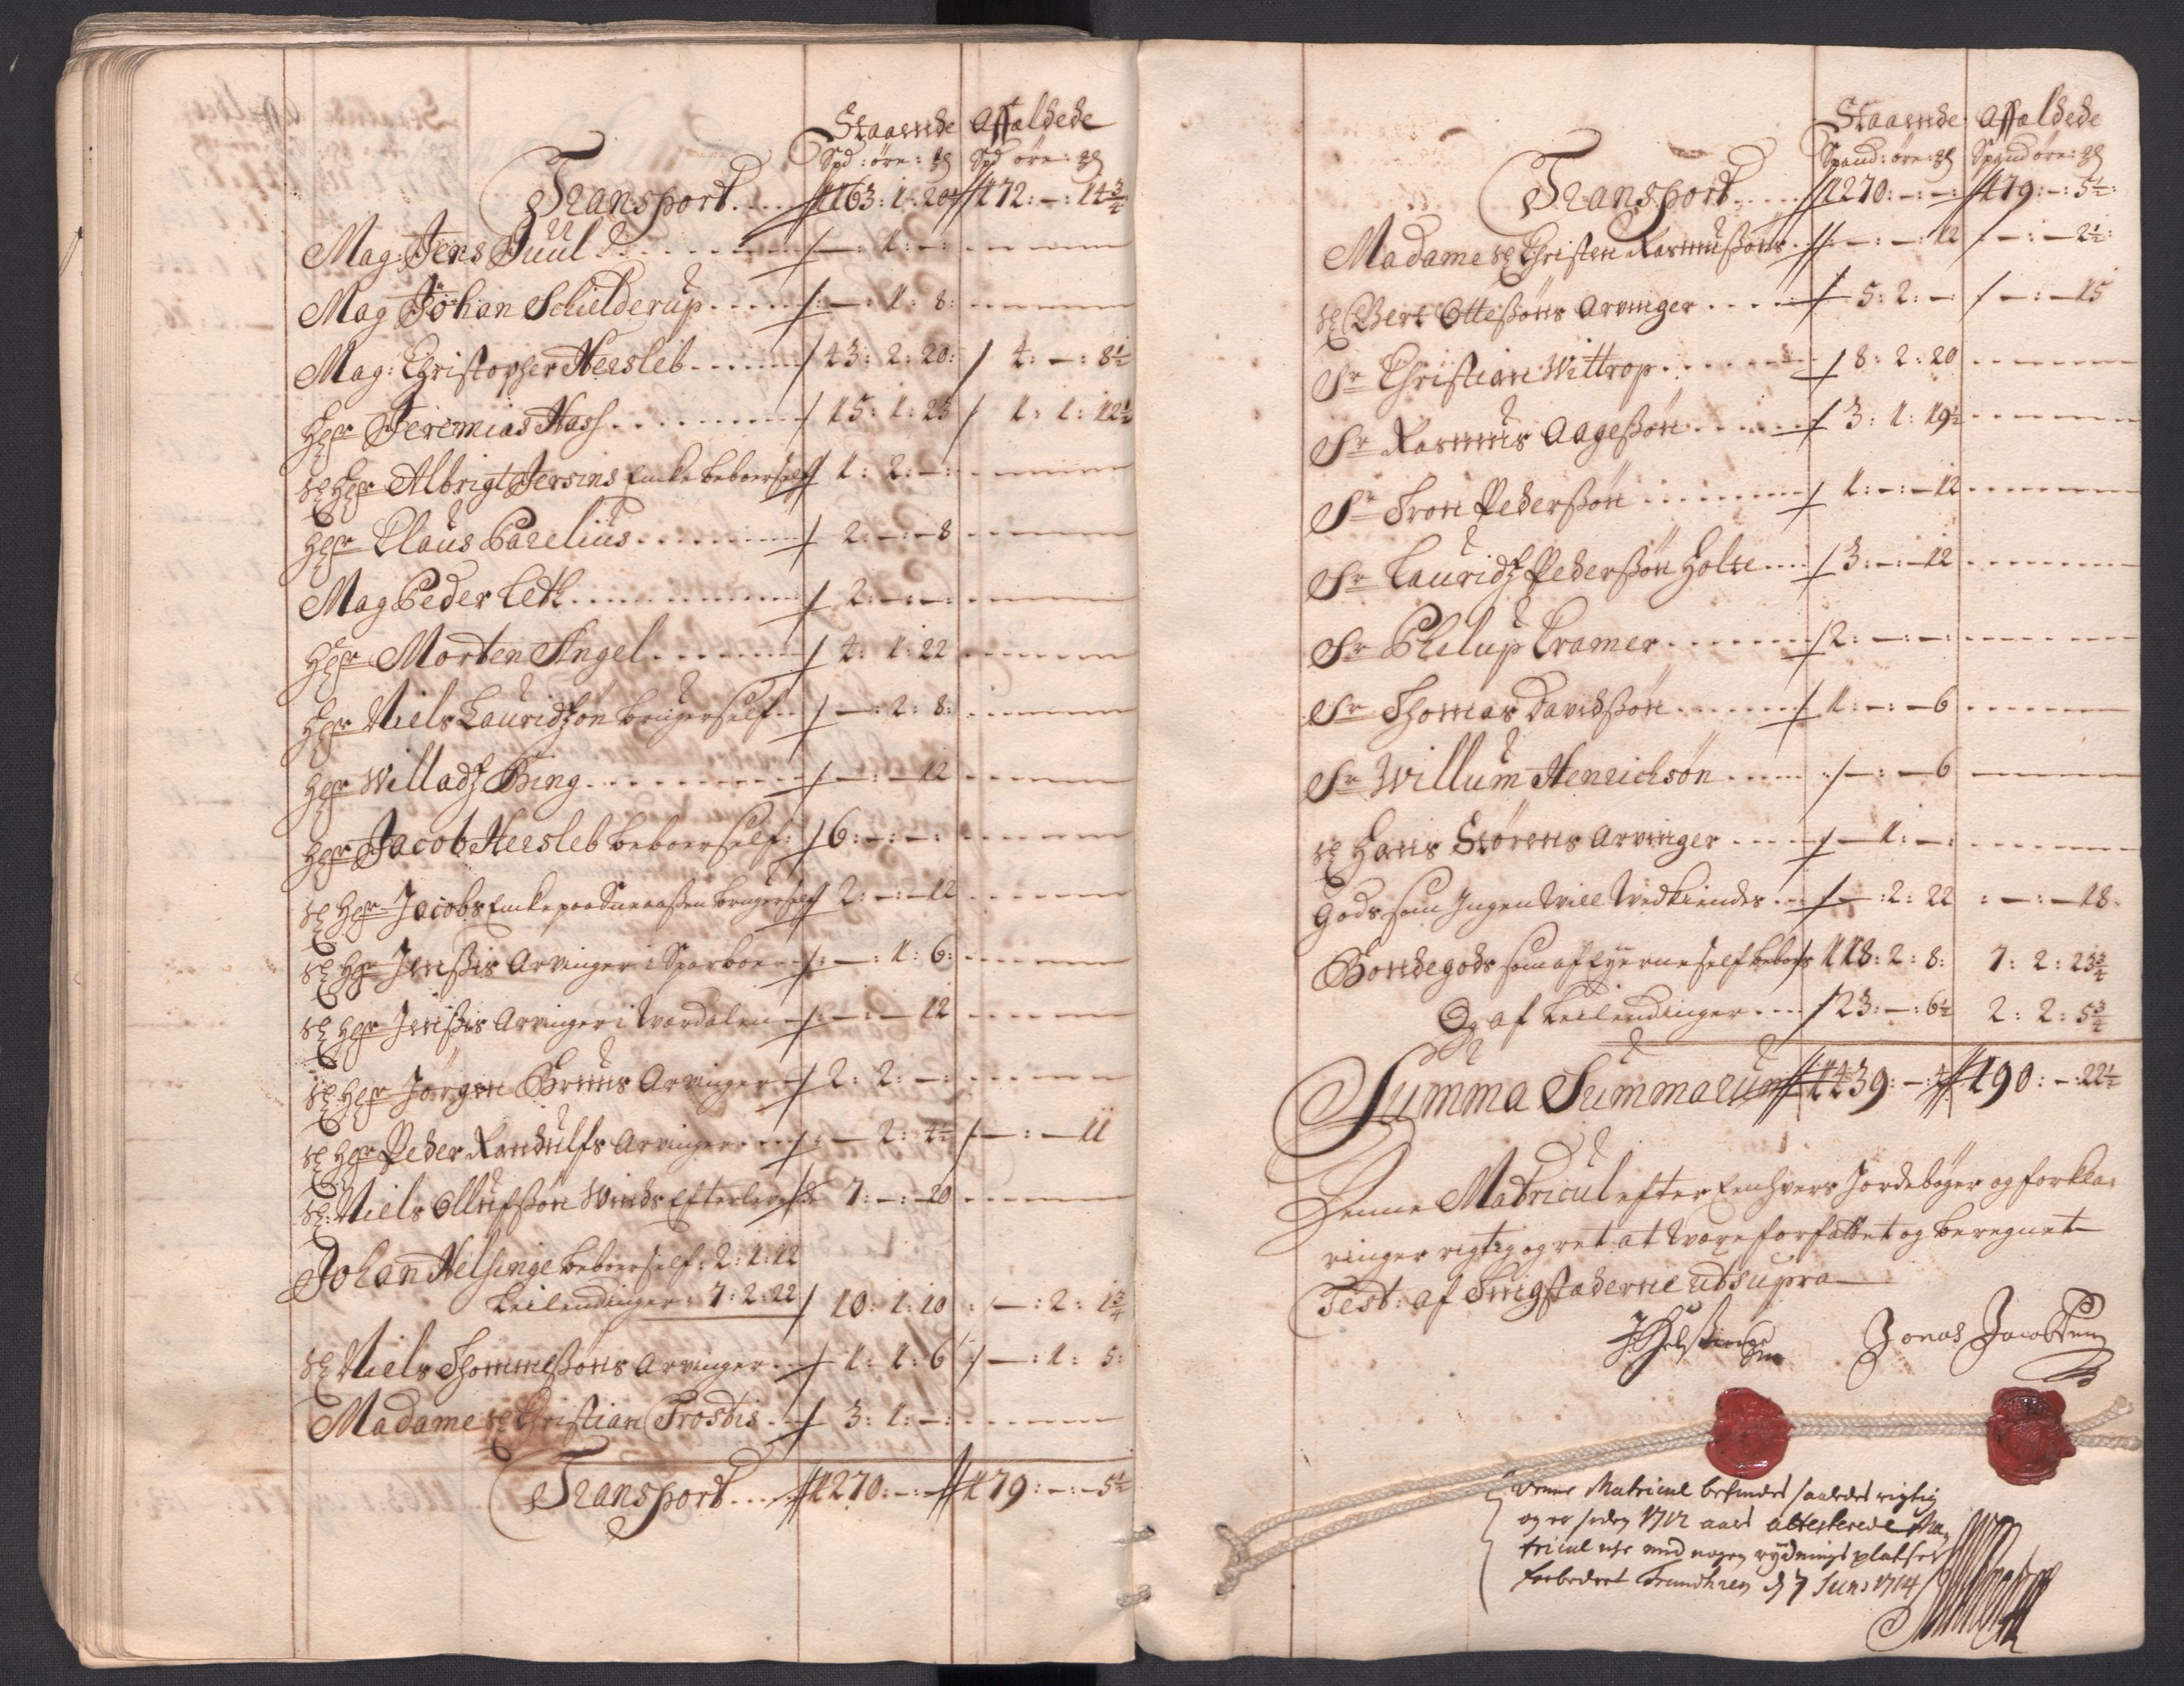 Staaende Affældede
Spd: öre: Spd öre:
Transport .... 1163: 1: 20 172: -: 14 3/4
Mag: Jens Juul ..... - : 1: -:
Mag Johan Schielderup ..... - : 1: 8:
Mag: Christopher Hersleb ...... 43: 2: 20: 4: -: 8 1/2
Hr Jeremias Hass ........ 15: 1: 23 1: 1: 12 1/2
Sl Hr Albrigt Jersins Encke beboer self 1: 2: -:
Hr Claus Parelius ......... 2: -: - 8
Mag Peder Leth ........... 2: -: -:
Hr Morten Angel ........ 4: 1: 22
Hr Niels Lauridzøn bruger self .. - : 2: 8:
Hr Willadz Bing .......... - : - 12
Hr Jacob Hersleb beboer self: 6: -: -:
Sl Hr Jacobs Encke paa Sneaasen bruger self 2: -: - 12
Sl Hr Jenssis Arvinger i Sparboe - : 1: 6:
Sl Hr Jenssis Arvinger i Værdalen - : - 12
Sl: Hr Jörgen Bruns Arvinger 2: 2: -:
Sl Hr Peder Randulfs Arvinger .... - 2: 4 1/2 - : - 11
Sl: Niels Ollufsøn Winds Efterlevende 7: -: - 20
Johan Helsinge beboer self: 2: 1: 12
Leilendinger: 7: 2: 22 10: 1: 10 : - : 2: 1 3/4
Sl Niels Thommesøns Arvinger .. 1: 1: 6 - : 1: 5:
Madame Sl Christian Frostis .. 3: 1: -:
Transport .... 1270: -: - 179: -: - 5 1/2
Staaende Affældede
Spand: öre: Spand öre:
Transport ..... 1270: -: -: 179: -: 5 1/2:
Madame Sl Christen Rasmussøns . - : - : 12 - : - 2 1/2:
Sl Bert Ottesøns Arvinger ..... 5: 2: -: - : - 15
Sr Christian Wittrop ....... 8: 2: 20
Sr Rasmus Aagesøn ...... 3: 1: 19 1/2
Sr Tron Pedersøn ....... 1: -: - 12
Sr Lauridz Pedersøn Holte ... 3: -: - 12
Sr Philup Cramer ........ 2: -: -:
Sr Thomas Davidsøn ....... 1: -: - 6
Sr Willum Henrichsøn ..... : - : - 6
Sl Hans Størens Arvinger ..... - 1: -:
Gods som Ingen will Vedkiendes ... - : 2: 22 : - : - 18.
Bondegods som af Eyerne self beboes 118: 2: 8: 7: 2: 23 3/4
Og af Leilendinger .... 23: -: 6 1/2 2: 2: 5 3/4
Summa Summarum 1439: -: 4 190: -: 22 1/2
Denne Matricul efter Eenhvers Jordebøger og forkla-
ringer rigtig og ret at være forfattet og beregnet
Test: af Tingstæderne ut supra
Jonas Jacobsen
Denne Matricul befindes saaledes rigtig
og er siden 1712 aars attesterede Ma-
tricul icke med nogen rydnings pladser
forbedret Trundhiem d 7 Juni 1714